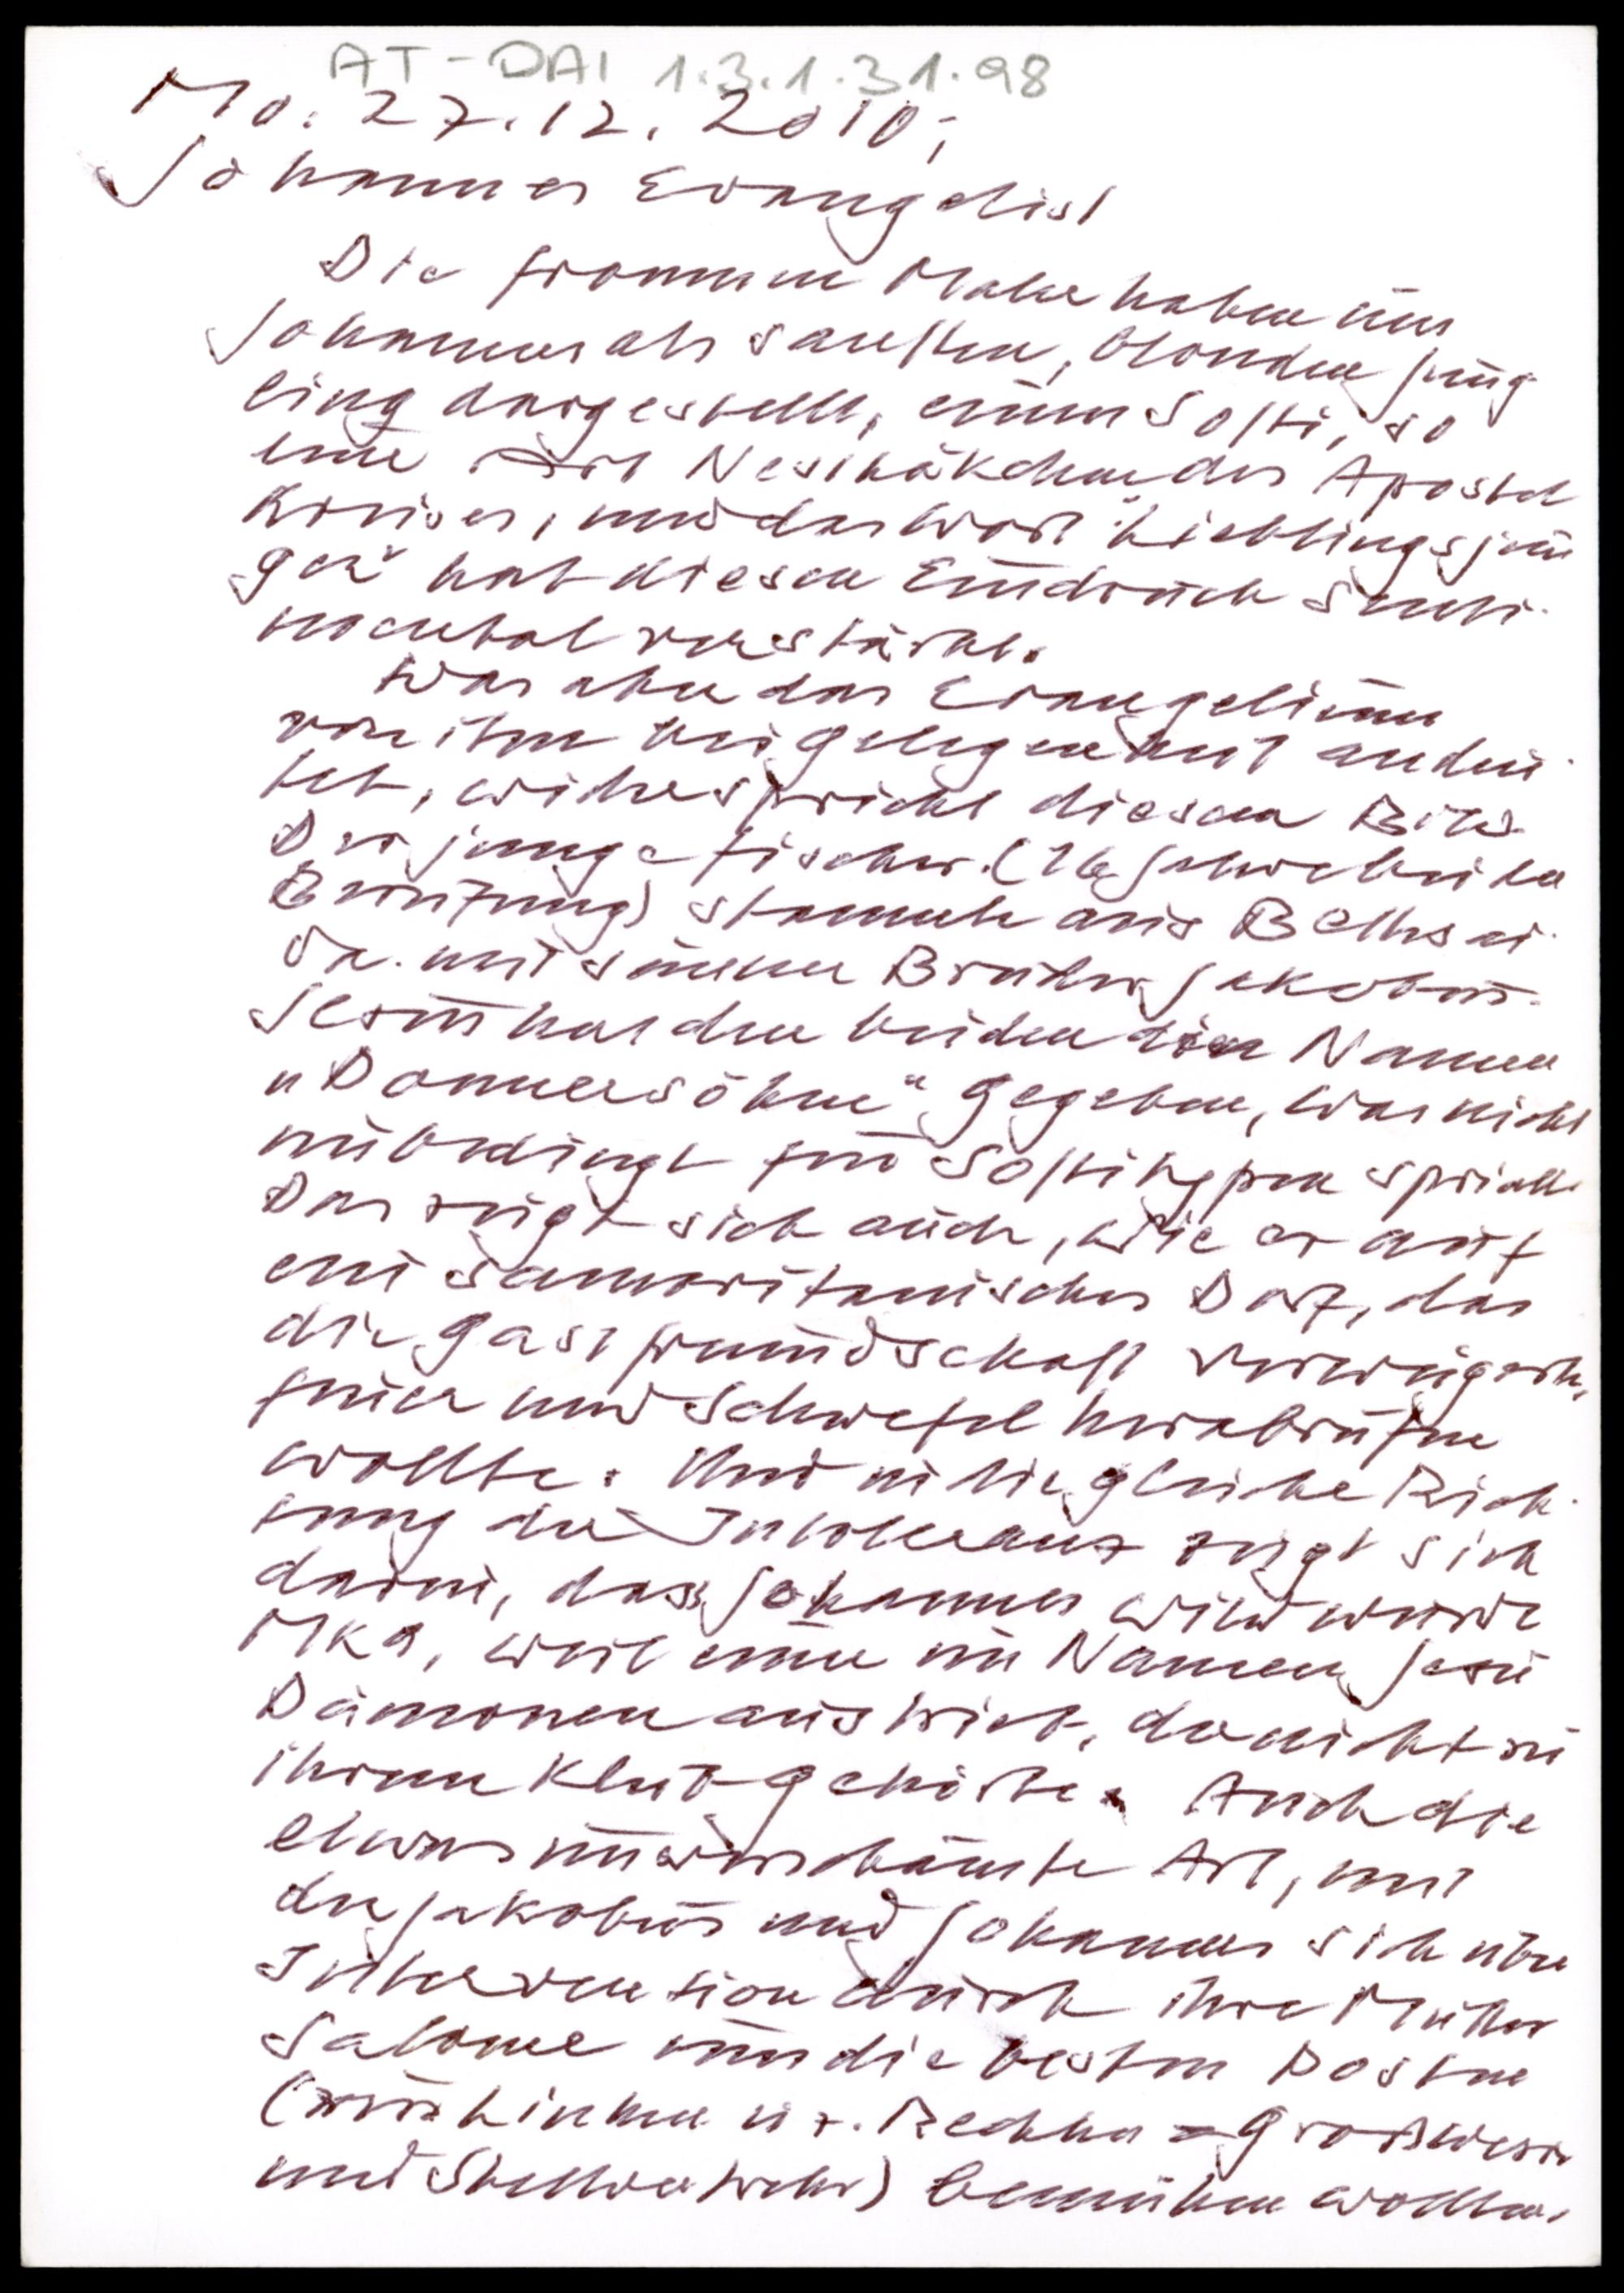 AT-DAI 1.3.1.31.98
Mo. 27.12.2010;
Johannes Evangelist
Die frommen Maler haben uns
Johannes als sanften, blonden Jüng
ling dargestellt, einen Softi, so
eine Art Nesthäkchen des Apostel
kreises, und das Wort "Lieblingsjün
ger" hat diesen Eindruck senti
mental verstärkt.
Was aber das Evangelium
von ihm bei Gelegenheit andeu
tet, widerspricht diesem Bild.
Der junge Fischer (16 Jahre bei der
Berufung) stammte aus Bethsai
da mit seinem Bruder Jakobus.
Jesus hat den beiden den Namen
"Donnersöhne" gegeben, was nicht
unbedingt für Softitypen spricht.
Das zeigt sich auch, wie er auf
ein samaritanisches Dorf, das
die Gastfreundschaft verweigerte,
Feuer und Schwefel herabrufen
wollte. Und in die gleiche Rich
tung der Intoleranz zeigt sich
darin, dass Johannes wild wurde
Mk 9, weil einer im Namen Jesu
Dämonen austrieb, der nicht zu
ihrem Klub gehörte. Auch die
etwas unverschämte Art, mit
der Jakobus und Johannes sich über
Intervention durch ihre Mutter
Salome um die besten Posten
(zur Linken u z. Rechten = Großwesir
und Stellvertreter) bemühen wollten,